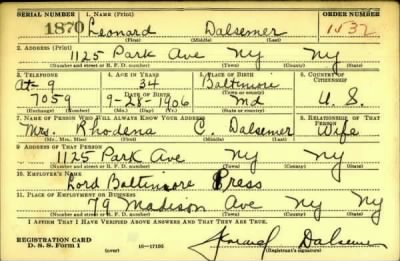 SERIAL NUMBER 1. NAME (Print) ORDER NUMBER
1870 Leonard Dalsemer 1537
(First) (Middle) (Last)
2. ADDRESS (Print)
1125 Park Ave NY NY
(Number and street or R. F. D. number) (Town) (County) (State)
3. TELEPHONE 4. AGE IN YEARS 5. PLACE OF BIRTH 6. COUNTRY OF CITIZENSHIP
At-9 34 Baltimore
DATE OF BIRTH (Town or county)
7059 9-28-1906 Md U.S.
(Exchange) (Number) (Mo.) (Day) (Yr.) (State or country)
7. NAME OF PERSON WHO WILL ALWAYS KNOW YOUR ADDRESS 8. RELATIONSHIP OF THAT PERSON
Mrs. Rhodena C. Dalsemer Wife
(Mr., Mrs., Miss) (First) (Middle) (Last)
9. ADDRESS OF THAT PERSON
1125 Park Ave NY NY
(Number and street or R. F. D. number) (Town) (County) (State)
10. EMPLOYER'S NAME
Lord Baltimore Press
11. PLACE OF EMPLOYMENT OR BUSINESS
79 Madison Ave NY NY
(Number and street or R. F. D. number) (Town) (County) (State)
I AFFIRM THAT I HAVE VERIFIED ABOVE ANSWERS AND THAT THEY ARE TRUE.
REGISTRATION CARD
D. S. S. Form 1 (over) 16-17105 Leonard Dalsemer
(Registrant's signature)